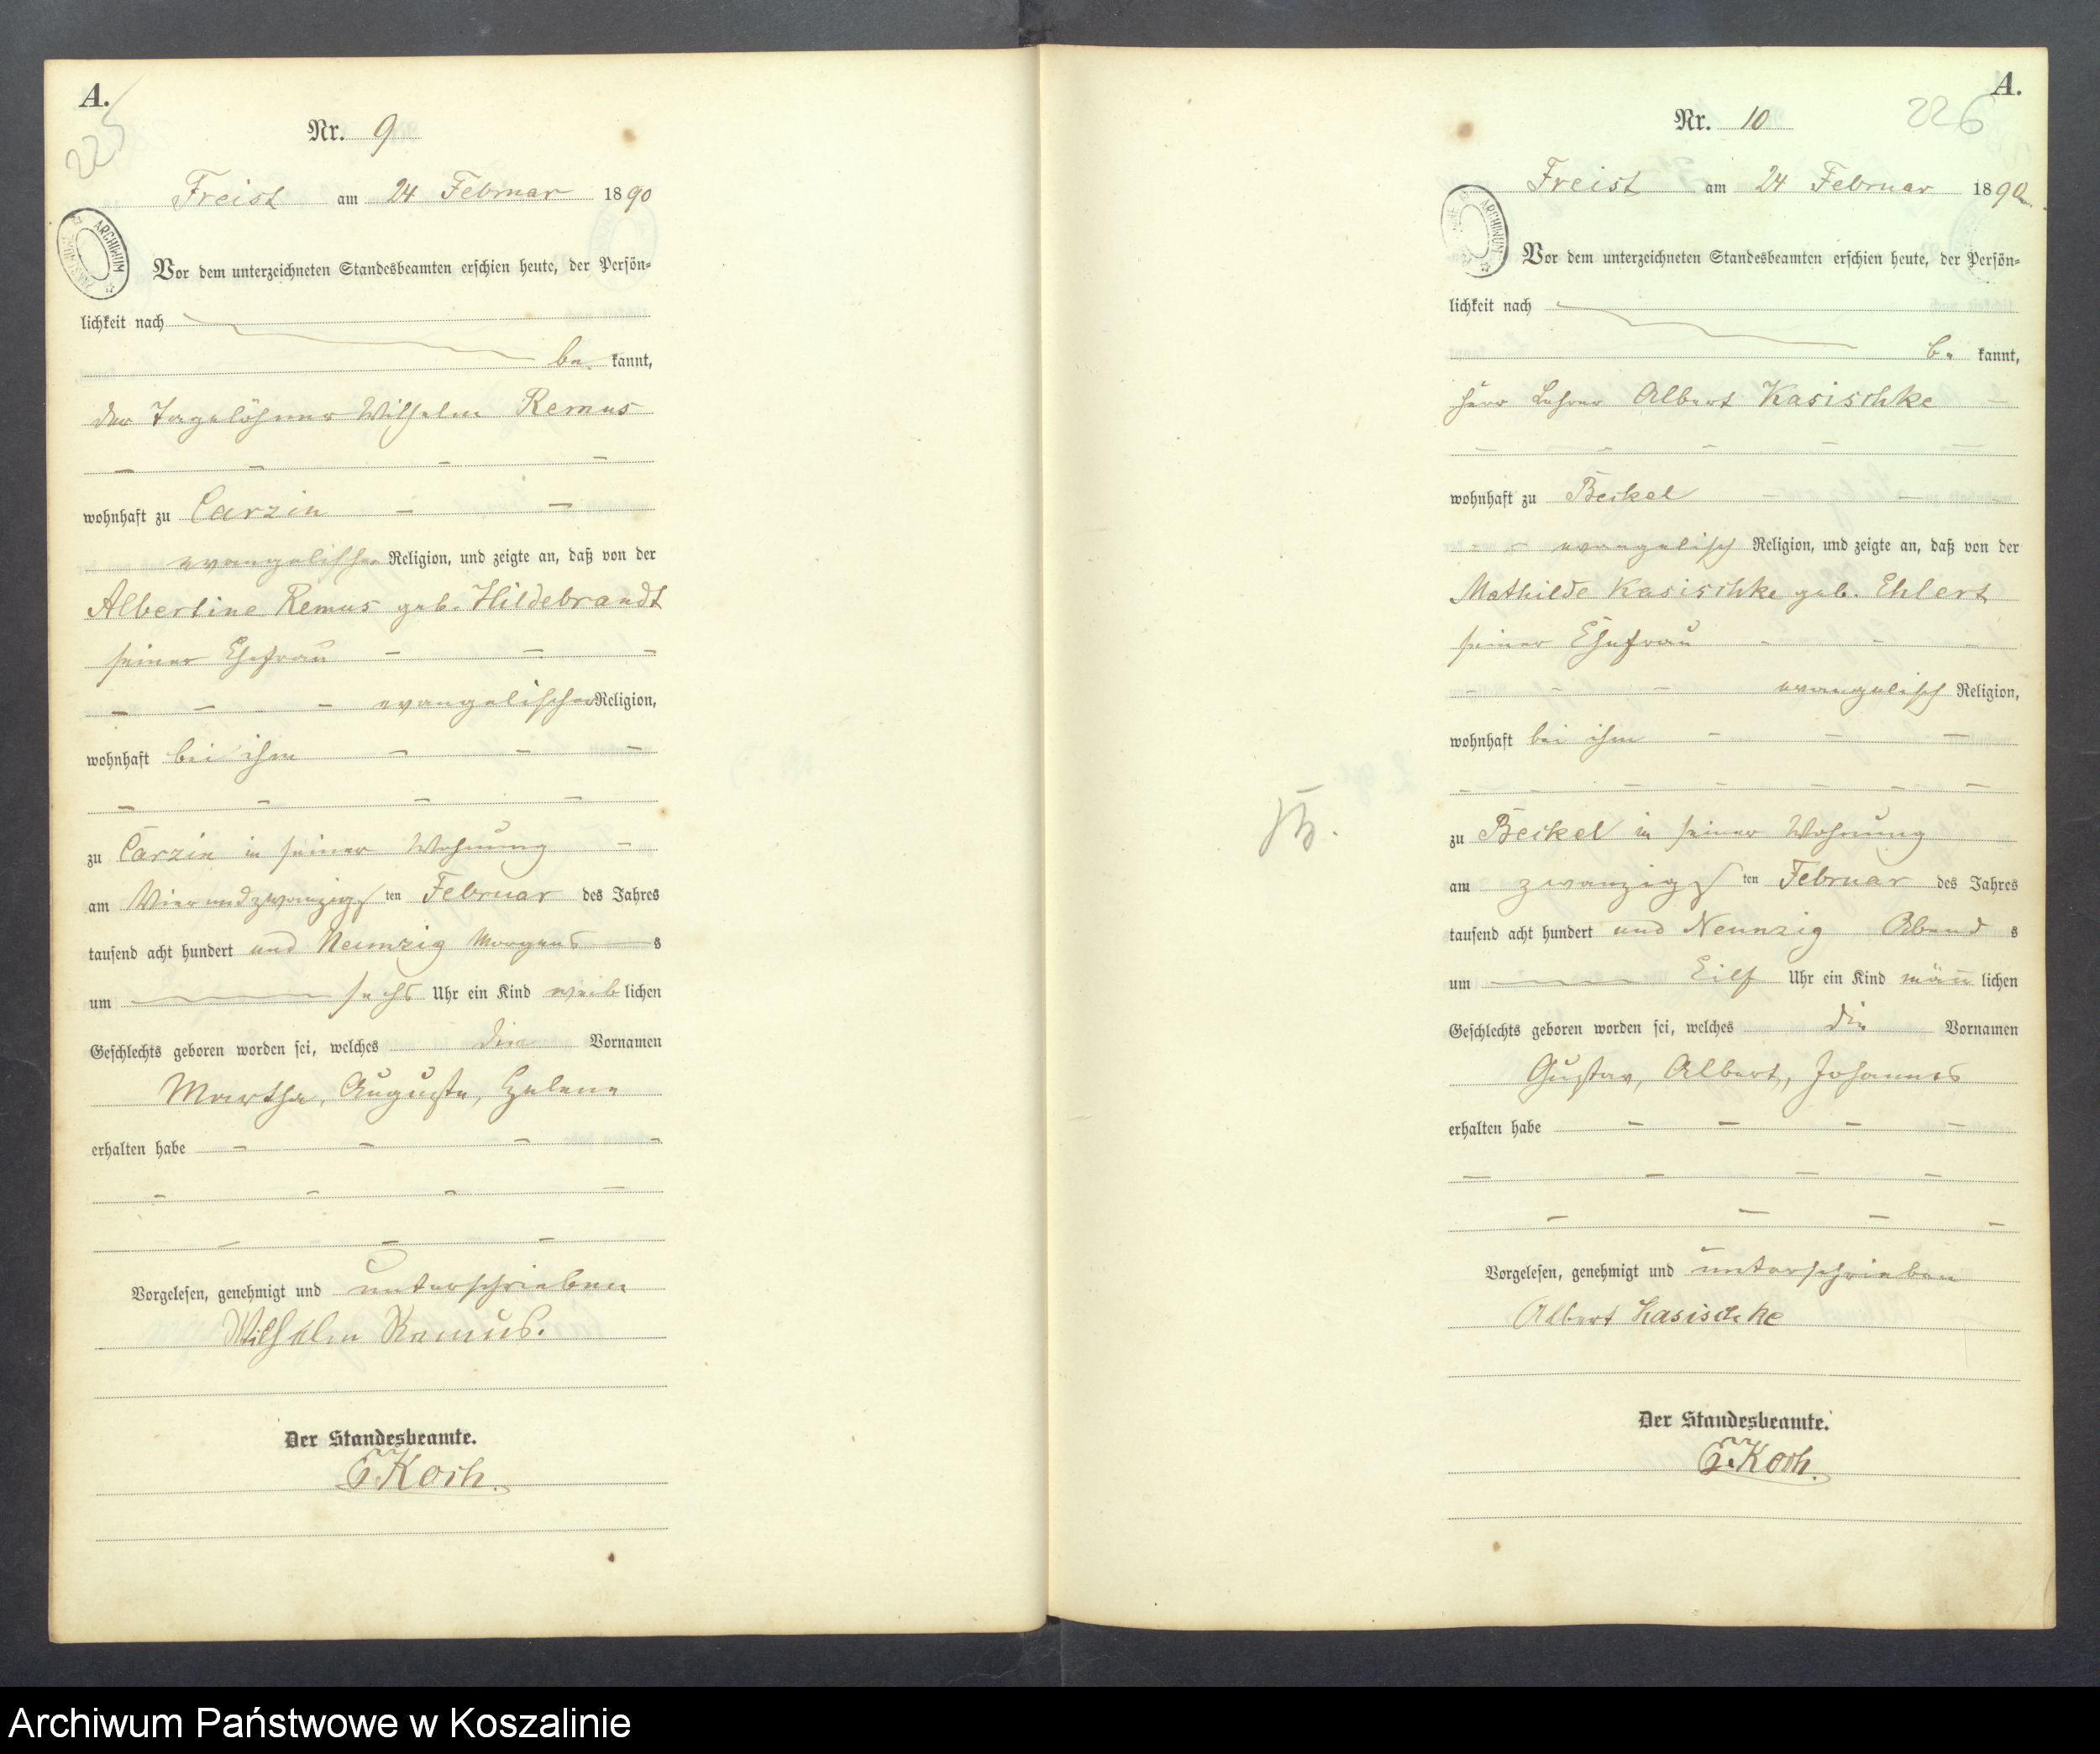 A.
225
Nr. 9
Freist am 24 Februar 1890
ARCHIWUM
Vor dem unterzeichneten Standesbeamten erschien heute, der Persön-
lichkeit nach
be kannt,
der Tagelöhner Wilhelm Remus
wohnhaft zu Carzin
evangelischer Religion, und zeigte an, daß von der
Albertine Remus geb. Hildebrandt
seiner Ehefrau
evangelischer Religion,
wohnhaft bei ihm
zu Carzin in seiner Wohnung
am Vierundzwanzigsten Februar des Jahres
tausend acht hundert und Neunzig Morgens s
um sechs Uhr ein Kind weiblichen
Geschlechts geboren worden sei, welches die Vornamen
Martha, Auguste, Helene
erhalten habe
Vorgelesen, genehmigt und unterschrieben
Wilhelm Remus.
Der Standesbeamte.
E. Koch.
A.
226
Nr. 10
Freist am 24 Februar 1890
ARCHIWUM
Vor dem unterzeichneten Standesbeamten erschien heute, der Persön-
lichkeit nach
be kannt,
Herr Lehrer Albert Kasischke
wohnhaft zu Beckel
evangelisch Religion, und zeigte an, daß von der
Mathilde Kasischke geb. Ehlert
seiner Ehefrau
evangelisch Religion,
wohnhaft bei ihm
zu Beckel in seiner Wohnung
am zwanzigsten Februar des Jahres
tausend acht hundert und Neunzig Abend s
um Eilf Uhr ein Kind männlichen
Geschlechts geboren worden sei, welches die Vornamen
Gustav, Albert, Johannes
erhalten habe
Vorgelesen, genehmigt und unterschrieben
Albert Kasischke
Der Standesbeamte.
E. Koch.
Archiwum Państwowe w Koszalinie